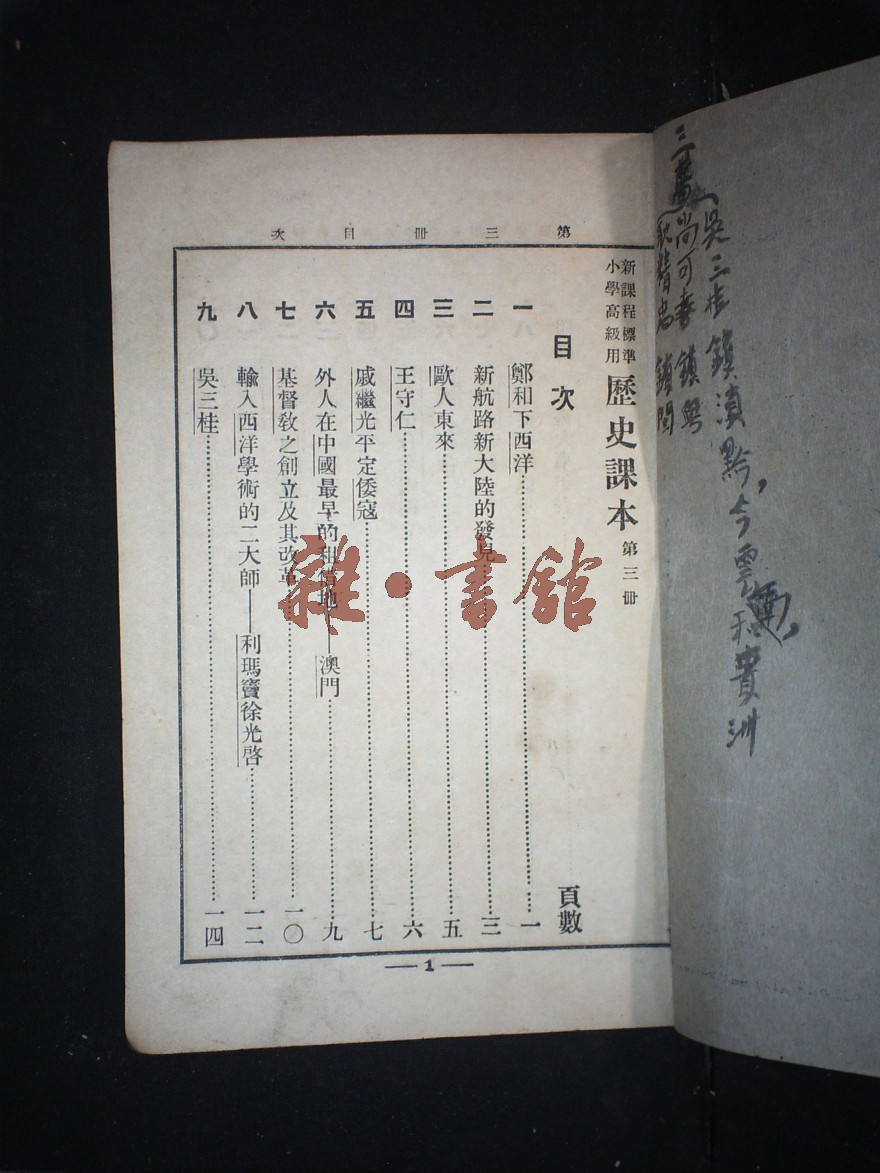 吳三桂鎮滇黔,今雲南,和貴洲
三藩
尚可喜鎮粵
耿精忠鎮閩
第三冊目次
新課程標準
小學高級用
歷史課本 第三冊
目次 頁數
一 鄭和下西洋 一
二 新航路新大陸的發見 三
三 歐人東來 五
四 王守仁 六
五 戚繼光平定倭寇 七
六 外人在中國最早的租借地——澳門 九
七 基督敎之創立及其改革 一〇
八 輸入西洋學術的二大師——利瑪竇徐光啓 一二
九 吳三桂 一四
— 1 —
雜·書館